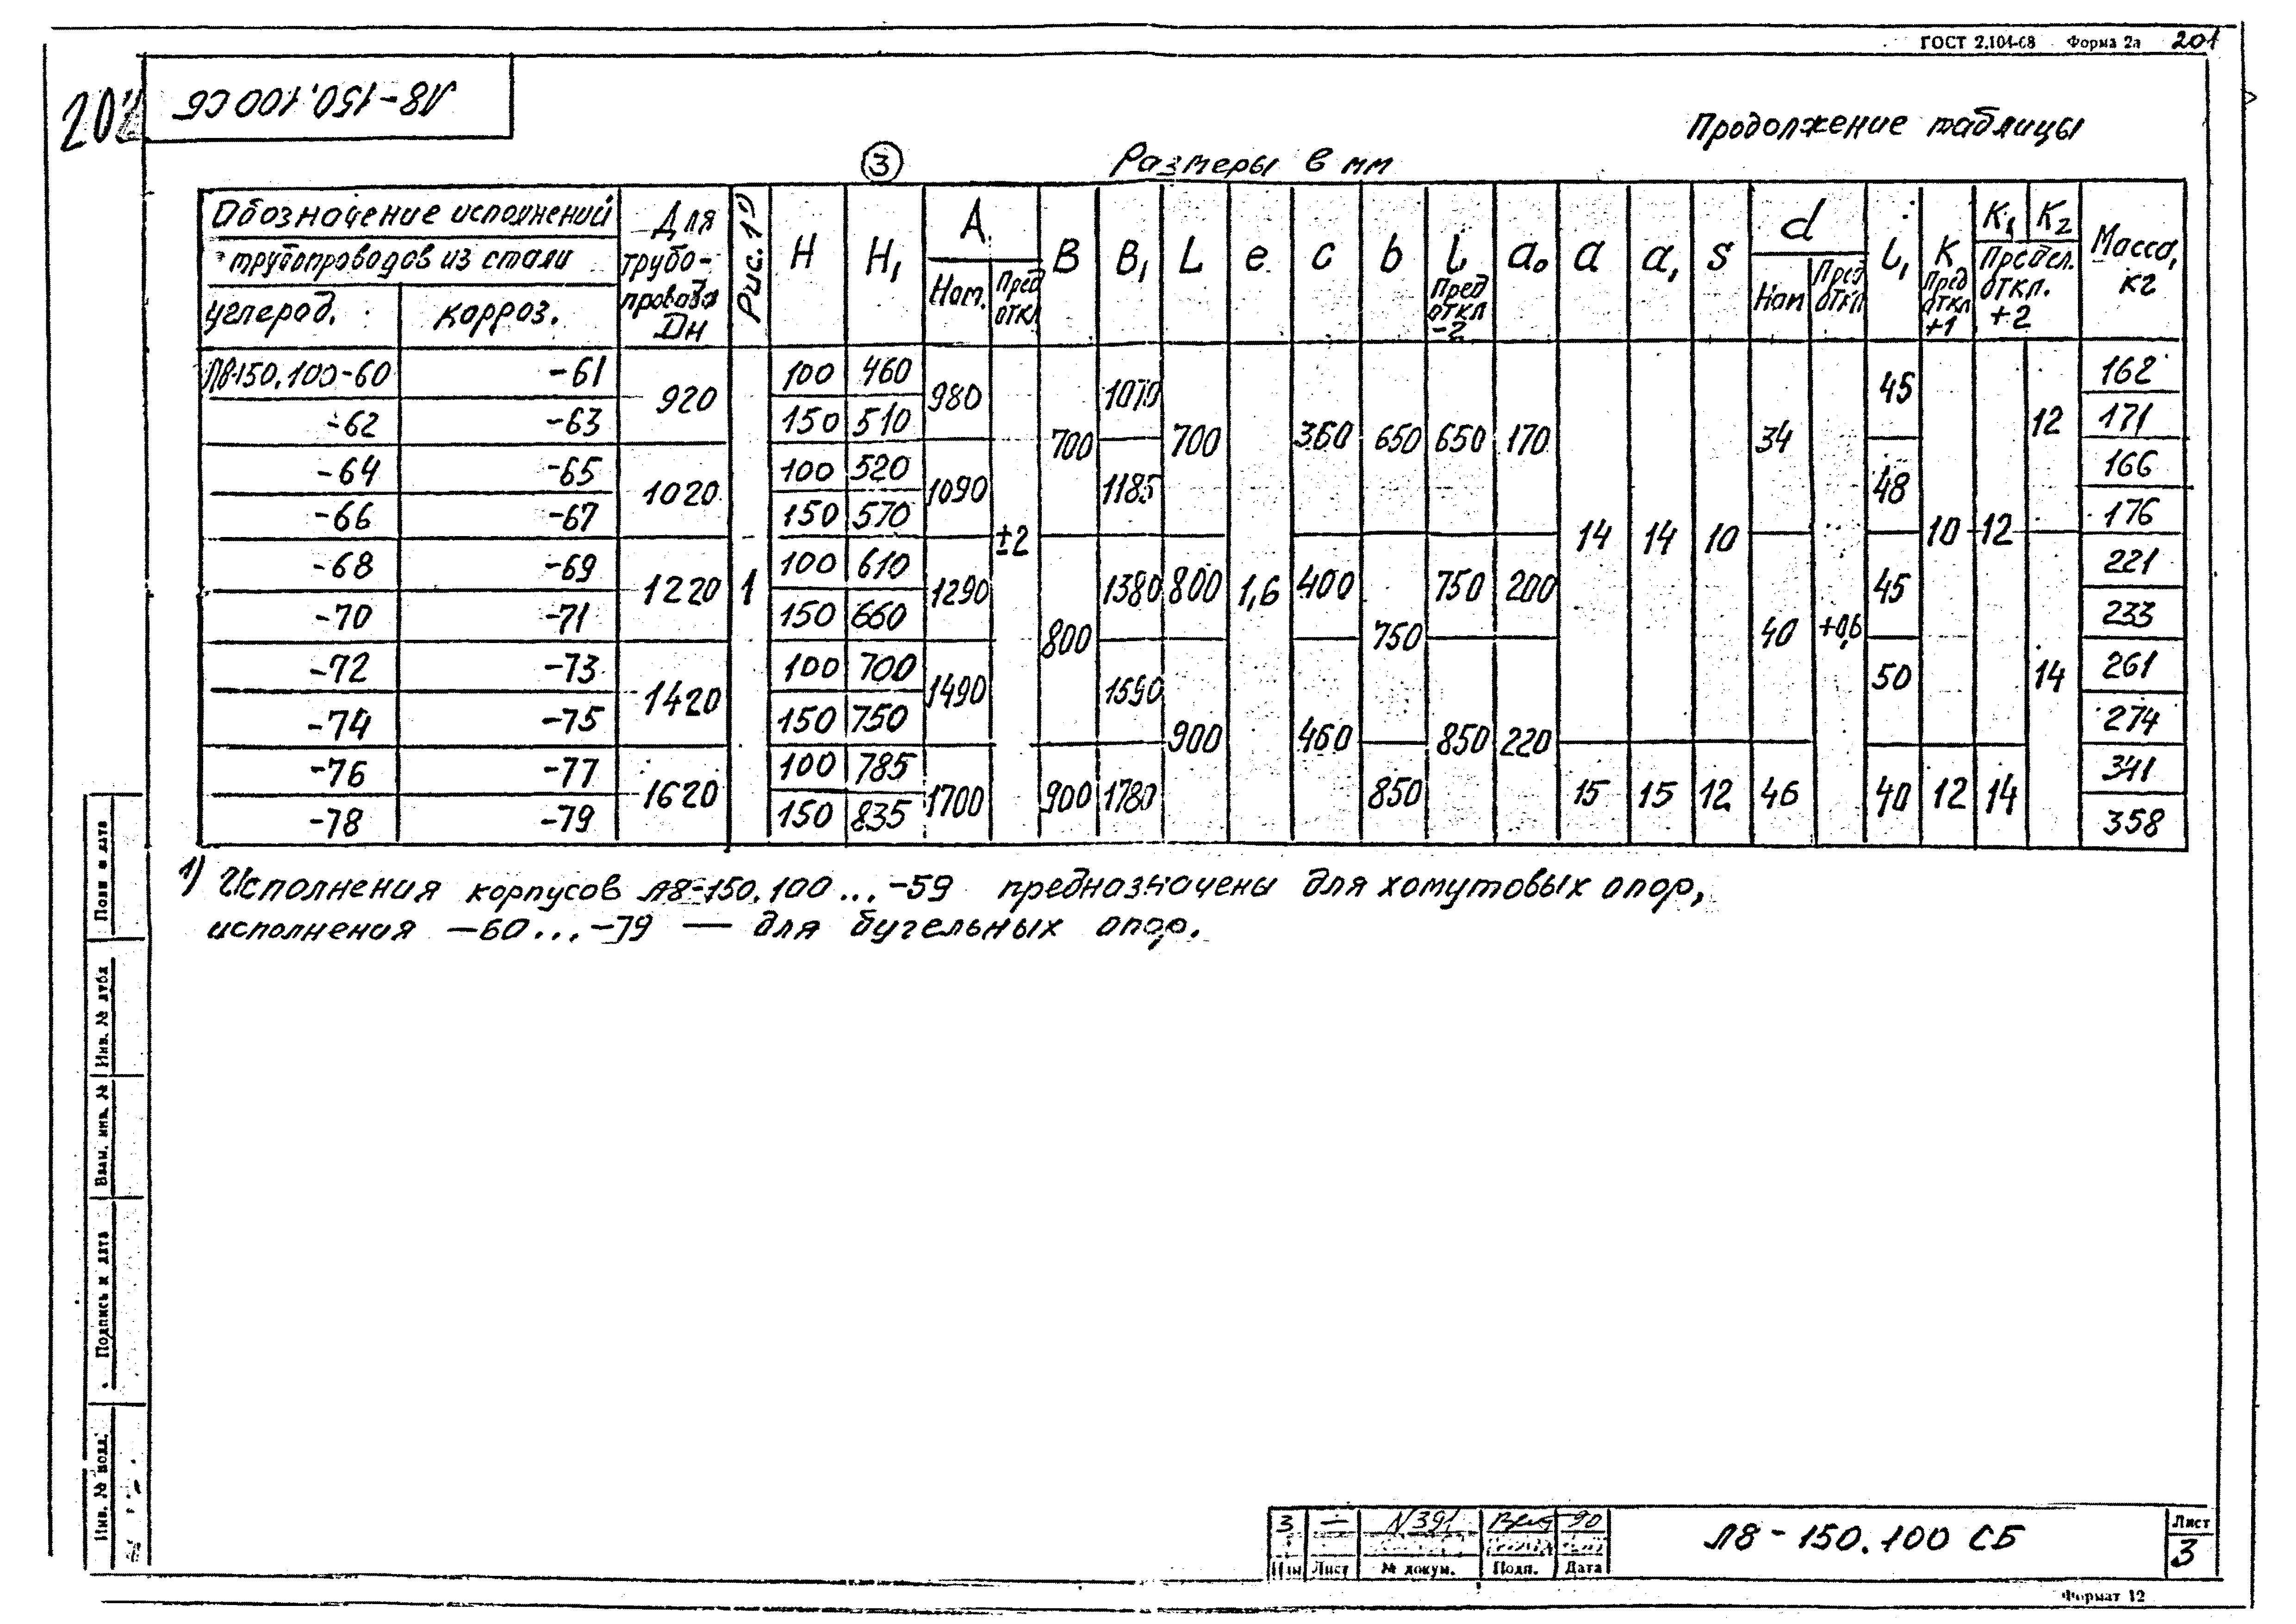 ГОСТ 2.104-68 Форма 2а 201
202
Л8-150.100 СБ
Продолжение таблицы
③ Размеры в мм
Обозначение исполнений трубопроводов из стали
углерод. корроз.
Для трубопровода Дн
Рис. 1)
H H₁
A Ном. Пред откл
B B₁ L e c b
l Пред откл -2
a₀ a a₁ s
d Ном Пред откл
l₁
K Пред откл +1
K₁ K₂ Предел. откл. +2
Масса, кг
Л8-150.100-60 -61 920 100 460 980 1070 45 162
-62 -63 150 510 12 171
700 700 360 650 650 170 34
-64 -65 1020 100 520 1090 1185 48 166
-66 -67 150 570 176
±2 14 14 10 10 12
-68 -69 1220 1 100 610 1290 1380 800 1,6 400 750 200 45 221
-70 -71 150 660 233
800 750 40 +0,6
-72 -73 1420 100 700 1490 1590 50 14 261
-74 -75 150 750 274
900 460 850 220
-76 -77 1620 100 785 1700 900 1780 850 15 15 12 46 40 12 14 341
-78 -79 150 835 358
1) Исполнения корпусов Л8-150.100...-59 предназначены для хомутовых опор,
исполнения -60...-79 — для бугельных опор.
Подп и дата
Инв. № дубл
Взам. инв. №
Подпись и дата
Инв. № подл.
3 — N391 90
Изм Лист № докум. Подп. Дата
Л8-150.100 СБ
Лист
3
Формат 12